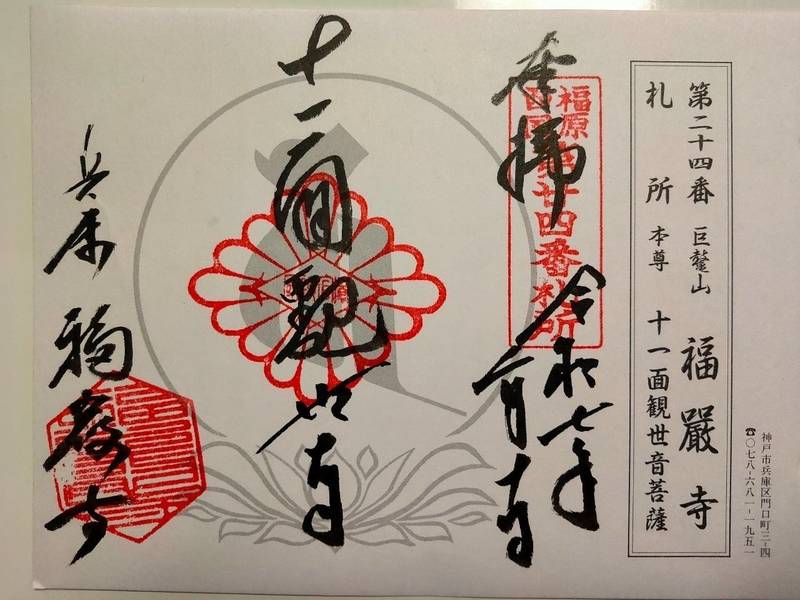 神戸市兵庫区門口町三-四
☎〇七八-六八一-一九五一
第二十四番 巨鼇山 福嚴寺
札所 本尊 十一面観世音菩薩
福原
西国
第廿四番札所
奉拝
令和七年
十一面観世音
兵庫 福嚴寺